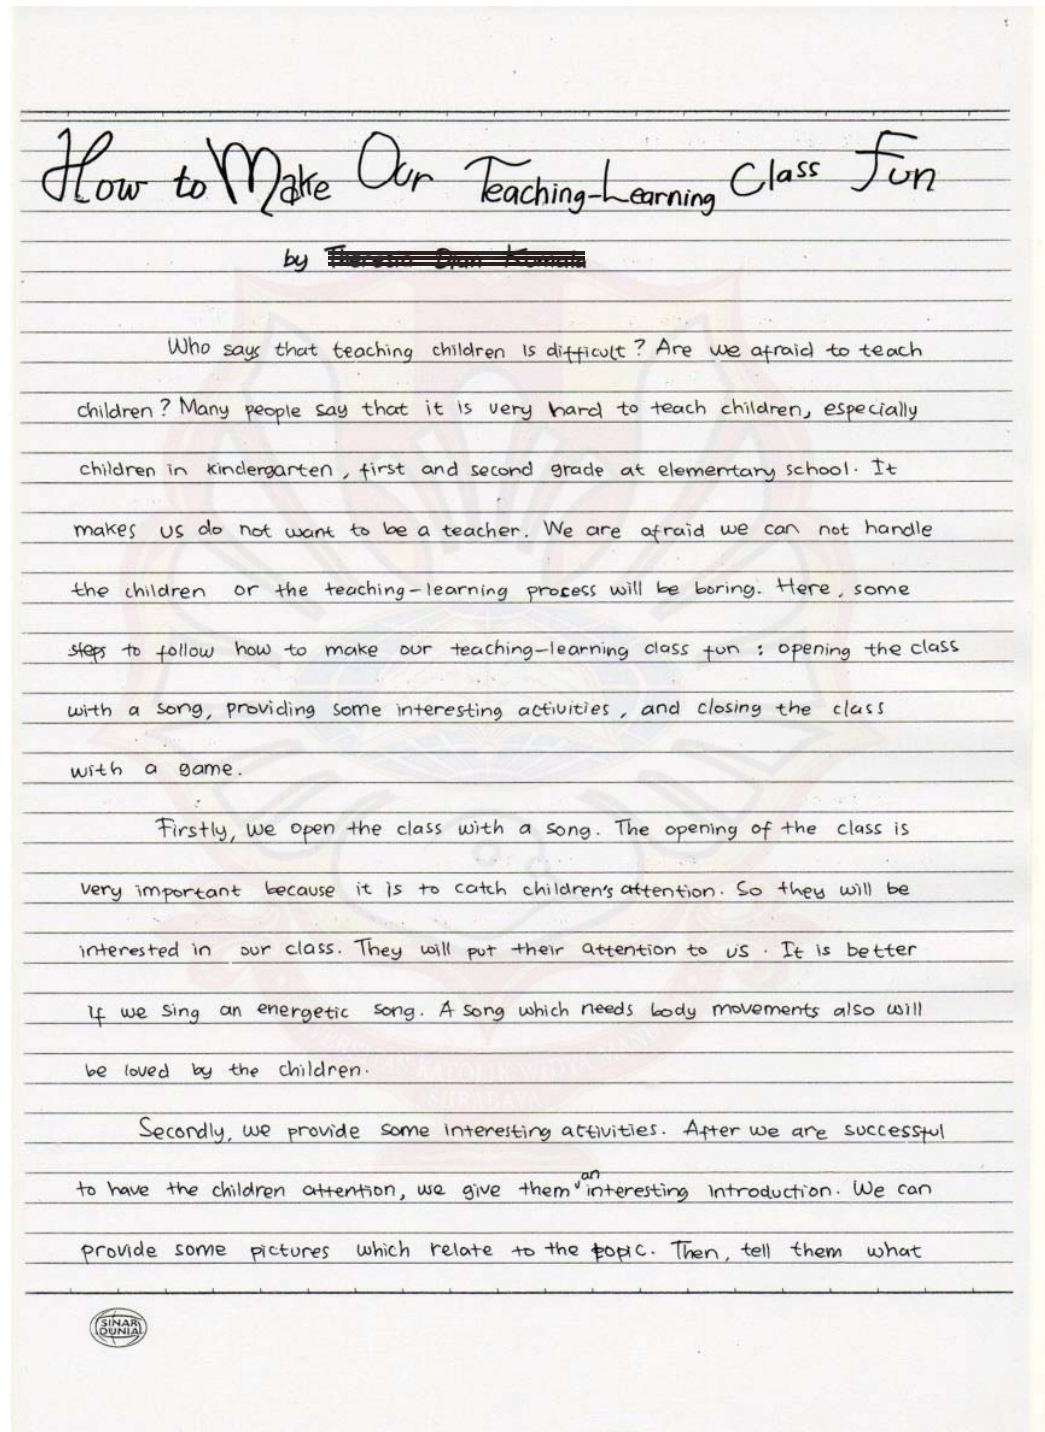 How to Make Our Teaching-Learning Class Fun
by
Who says that teaching children is difficult? Are we afraid to teach
children? Many people say that it is very hard to teach children, especially
children in kindergarten, first and second grade at elementary school. It
makes us do not want to be a teacher. We are afraid we can not handle
the children or the teaching-learning process will be boring. Here, some
steps to follow how to make our teaching-learning class fun : opening the class
with a song, providing some interesting activities, and closing the class
with a game.
Firstly, we open the class with a song. The opening of the class is
very important because it is to catch children's attention. So they will be
interested in our class. They will put their attention to us. It is better
if we sing an energetic song. A song which needs body movements also will
be loved by the children.
Secondly, we provide some interesting activities. After we are successful
to have the children attention, we give them an interesting introduction. We can
provide some pictures which relate to the topic. Then, tell them what
SINAR
DUNIA